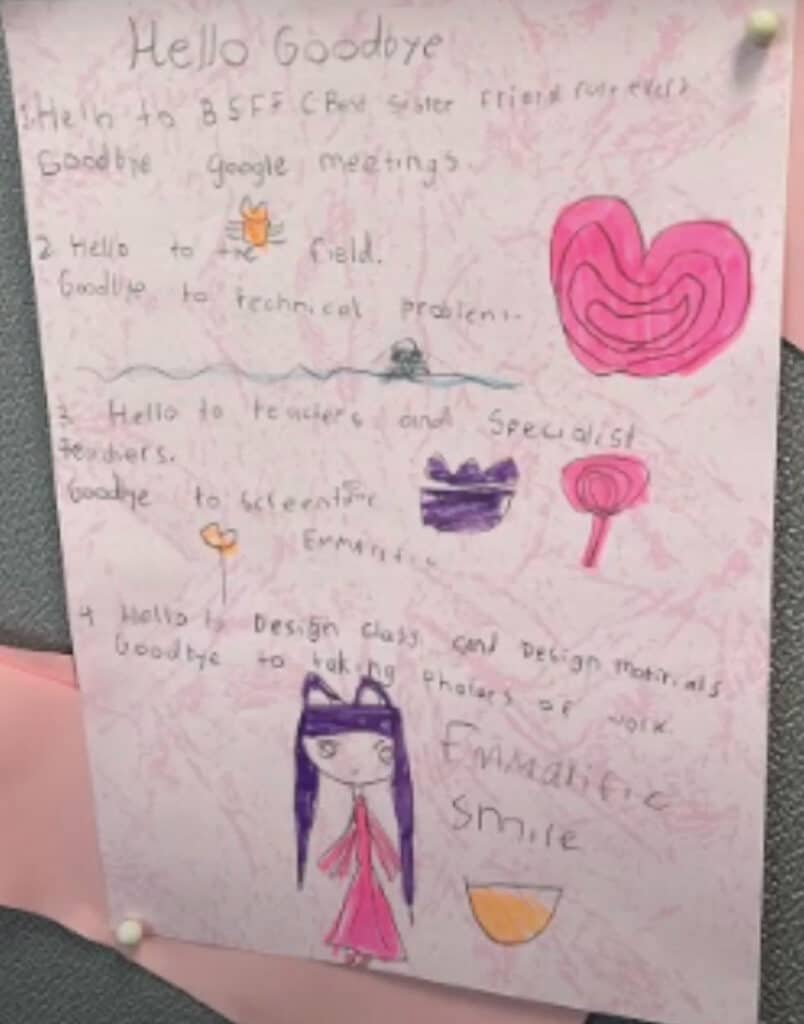 Hello Goodbye
1. Hello to BSFF (Best Sister Friend forever)
Goodbye google meetings.
2 Hello to the field.
Goodbye to technical problems.
3 Hello to teachers and Specialist
teachers.
Goodbye to screentime
Emmarific
4 Hello to Design class and Design materials
Goodbye to taking photos of work.
Emmarific
smile